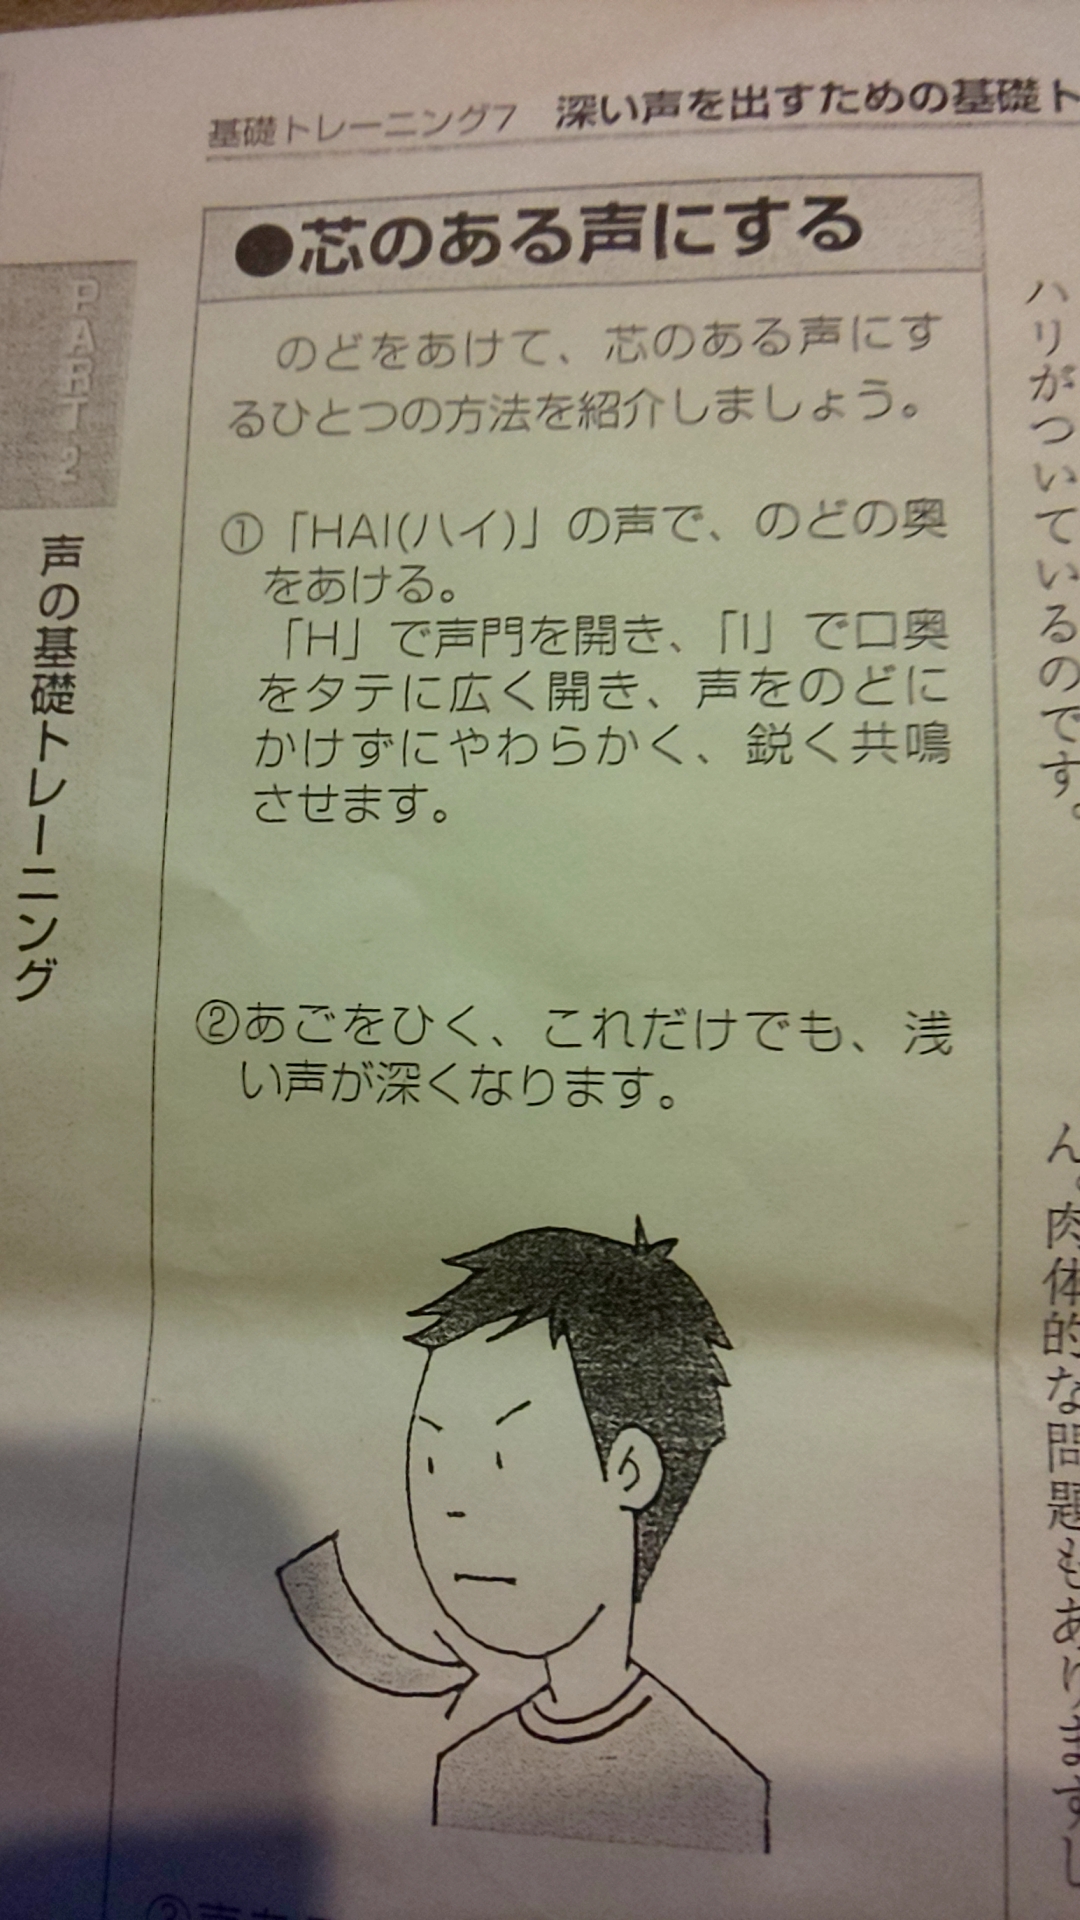 基礎トレーニング7 深い声を出すための基礎ト
●芯のある声にする
のどをあけて、芯のある声にす
るひとつの方法を紹介しましょう。
①「HAI(ハイ)」の声で、のどの奥
をあける。
「H」で声門を開き、「I」で口奥
をタテに広く開き、声をのどに
かけずにやわらかく、鋭く共鳴
させます。
②あごをひく、これだけでも、浅
い声が深くなります。
PART 2
声の基礎トレーニング
ハリがついているのです。
ん。肉体的な問題もありますし